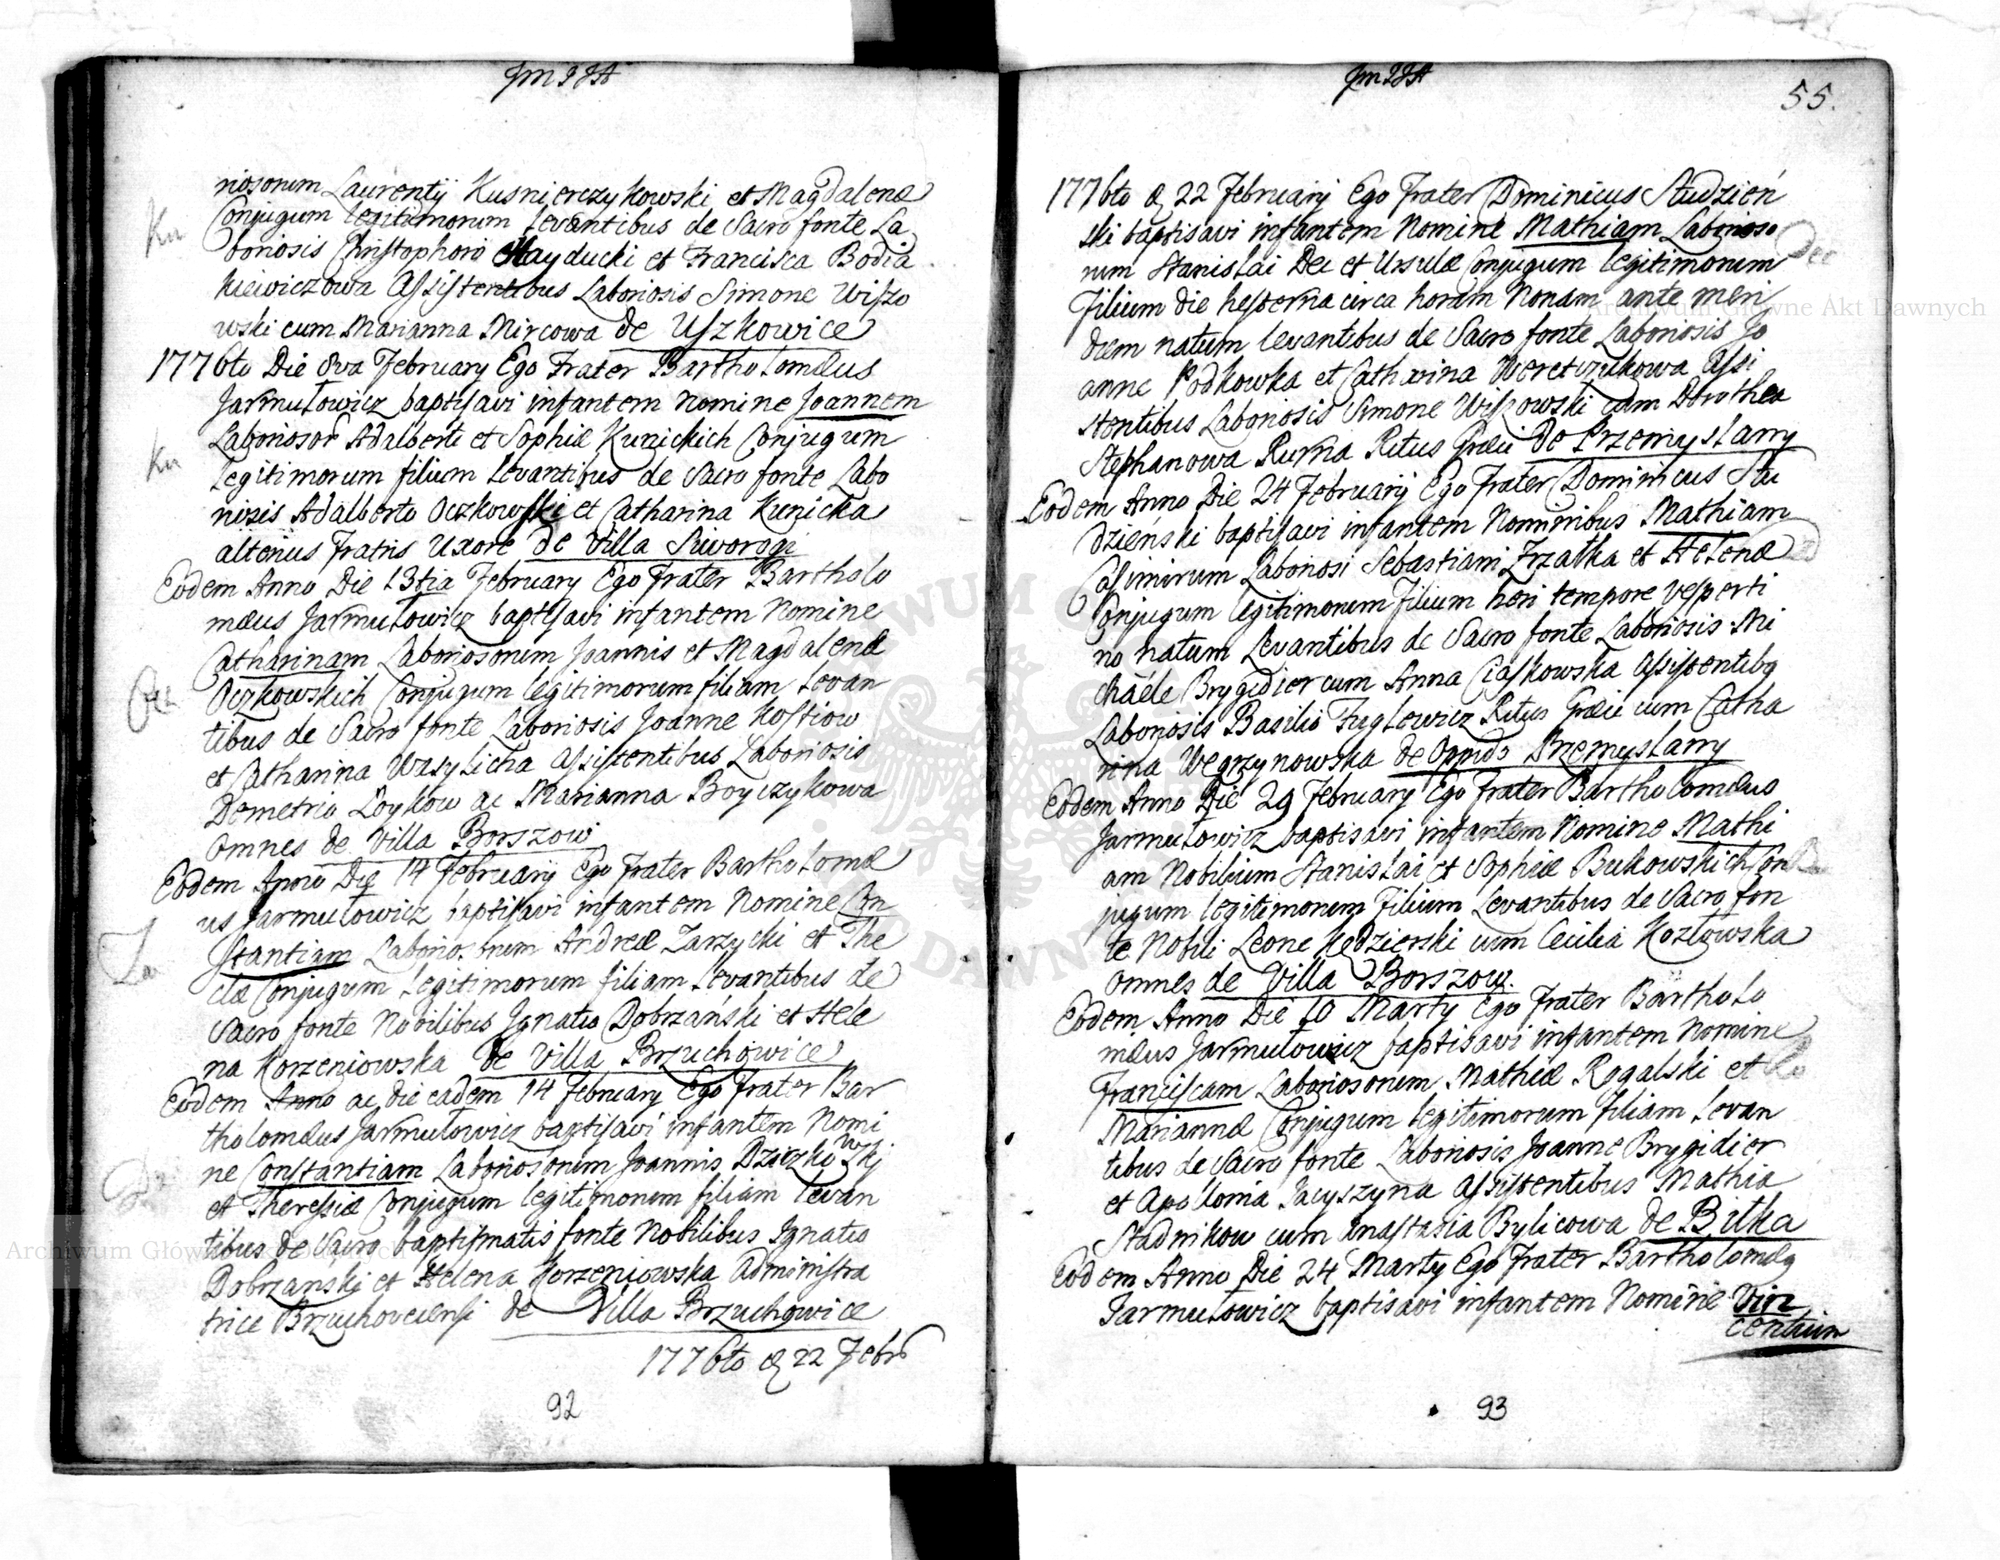 niosorum Laurentij Kusnierczykowski et Magdalenæ
Conjugum legitimorum levantibus de Sacro fonte La
Ku
boriosis Christophoro Hayducki et Francisca Bodia
kiewiczowa Assistentibus Laboriosis Simone Wiszo
wski cum Marianna Mircowa de Uszkowice
1776to Die 8va February Ego Frater Bartholomæus
Jarmutowicz baptisavi infantem Nomine Joannem
Laboriosor Adalberti et Sophiæ Kunickich Conjugum
Ku
legitimorum filium levantibus de Sacro fonte Labo
riosis Adalberto Oczkowski et Catharina Kunicka
alterius fratris Uxore de Villa Sworogi
Eodem Anno Die 13tia February Ego Frater Bartholo
mæus Jarmutowicz baptisavi infantem Nomine
Catharinam Laboriosorum Joannis et Magdalenæ
Ocz
Oczkowskich Conjugum legitimorum filiam levan
tibus de Sacro fonte Laboriosis Joanne Kostiow
et Catharina Wasylicha Assistentibus Laboriosis
Demetrio Loykow ac Marianna Boyczykowa
Omnes de Villa Borszow
Eodem Anno Die 14 February Ego Frater Bartholomæ
us Jarmutowicz baptisavi infantem Nomine Con
Za
stantiam Laboriosorum Andreæ Zarzycki et The
clæ Conjugum legitimorum filiam levantibus de
Sacro fonte Nobilibus Ignatio Dobrzański et Hele
na Korzeniowska de Villa Brzuchowice
Eodem Anno ac die eadem 14 February Ego Frater Bar
tholomæus Jarmutowicz baptisavi infantem Nomi
ne Constantiam Laboriosorum Joannis Dziczkowskj
et Theressiæ Conjugum legitimorum filiam levan
tibus de Sacro baptismatis fonte Nobilibus Ignatio
Dobrzanski et Helena Korzeniowska Administra
trice Brzuchoviciensi de Villa Brzuchowice
1776to d 22 Febr
92
55.
1776to d 22 February Ego Frater Dominicus Studzień
ski baptisavi infantem Nomine Mathiam Laborioso
Dec
rum Stanislai Dec et Ursulæ Conjugum legitimorum
Filium die hesterna circa horam Nonam ante meri
diem natum levantibus de Sacro fonte Laboriosis Jo
anne Podkowka et Catharina Weretczukowa Assi
stentibus Laboriosis Simone Wiszowski cum Dorothea
Stephanowa Ritus Græci de Przemyslany
Eodem Anno Die 24 February Ego Frater Dominicus Stu
dzieński baptisavi infantem Nominibus Mathiam
Casimirum Laboriosi Sebastiani Trzałka et Helenæ
Conjugum legitimorum Filium heri tempore vesperti
no natum Levantibus de Sacro fonte Laboriosis Mi
chaele Brygidier cum Anna Ciaskowska Assistentibq
Laboriosis Basilio Fuglewicz Ritus Græci cum Catha
rina Wegrzynowska de Oppido Przemyslany
Eodem Anno Die 29 February Ego Frater Bartholomæus
Jarmutowicz baptisavi infantem Nomine Mathi
am Nobilium Stanislai et Sophiæ Bukowskich Con
jugum legitimorum Filium Levantibus de Sacro fon
te Nobili Leone Kędzierski cum Cecilia Kozłowska
Omnes de Villa Borszow.
Eodem Anno Die 10 Marty Ego Frater Bartholo
mæus Jarmutowicz baptisavi infantem Nomine
Franciscam Laboriosorum Mathiæ Rogalski et
Ro
Mariannæ Conjugum legitimorum filiam levan
tibus de Sacro fonte Laboriosis Joanne Brygidier
et Apolonia Jacyszyna Assistentibus Mathia
Stadnikow cum Anastasia Bylicowa de Bilka
Eodem Anno Die 24 Marty Ego Frater Bartholomæq
Jarmutowicz baptisavi infantem Nomine Vin
centium
93
Archiwum Główne Akt Dawnych